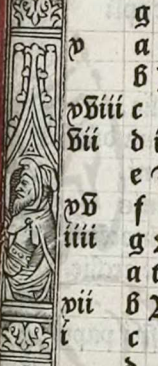 g
x a
b
xviii c
vii d i
e
xv f
iiii g
a
xii b
i c
d